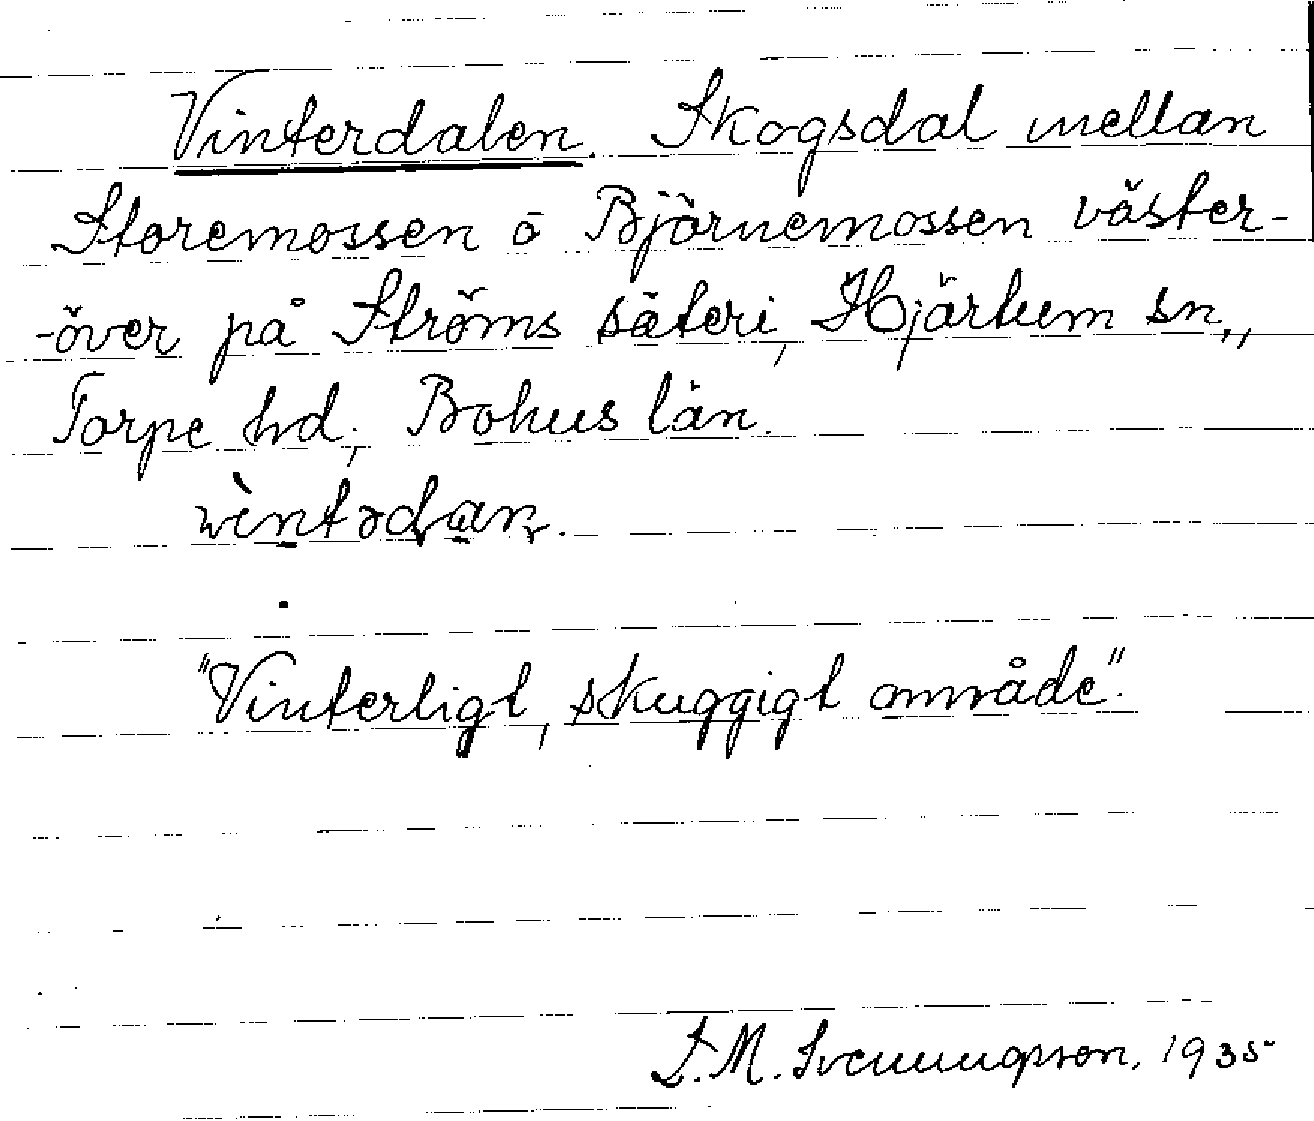 Vinterdalen. Skogsdal mellan
Storemossen ō Björnemossen väster-
-över på Ströms säteri, Hjärtum sn.,
Torpe hd, Bohus län.
"Vinterligt, skuggigt område".
S.M. Svenungsson, 1935